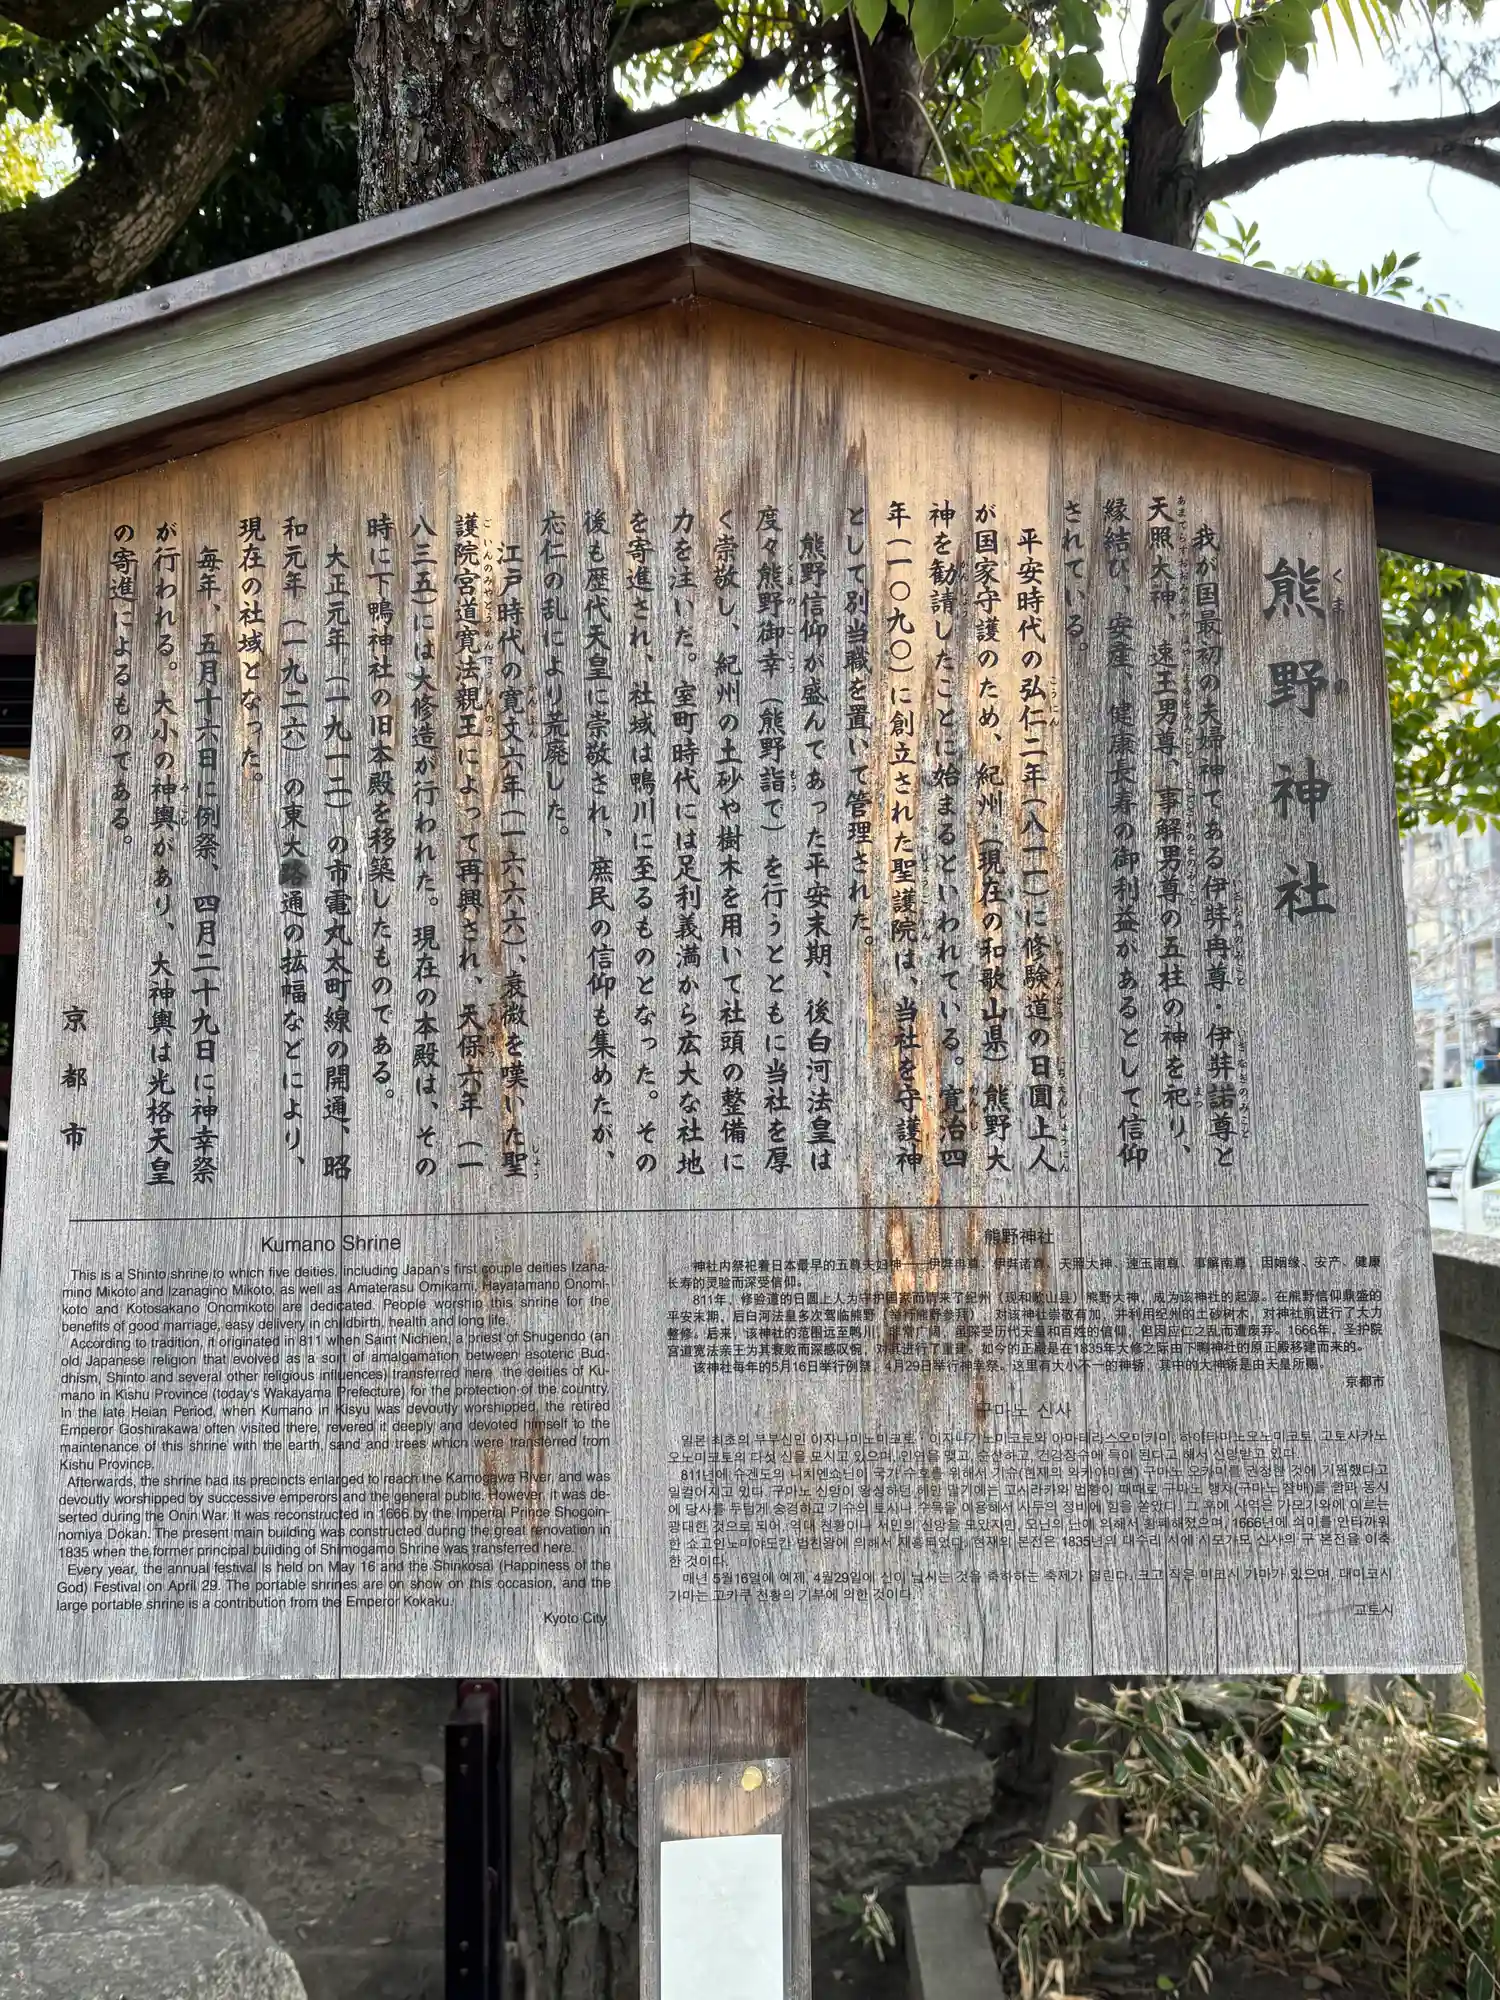 熊野神社
くまの
我が国最初の夫婦神である伊弉冉尊・伊弉諾尊と
天照大神、速玉男尊、事解男尊の五柱の神を祀り、
縁結び、安産、健康長寿の御利益があるとして信仰
されている。
平安時代の弘仁二年(八一一)に修験道の日圓上人
が国家守護のため、紀州(現在の和歌山県)熊野大
神を勧請したことに始まるといわれている。寛治四
年(一〇九〇)に創立された聖護院は、当社を守護神
として別当職を置いて管理された。
熊野信仰が盛んであった平安末期、後白河法皇は
度々熊野御幸(熊野詣で)を行うとともに当社を厚
く崇敬し、紀州の土砂や樹木を用いて社頭の整備に
力を注いだ。室町時代には足利義満から広大な社地
を寄進され、社域は鴨川に至るものとなった。その
後も歴代天皇に崇敬され、庶民の信仰も集めたが、
応仁の乱により荒廃した。
江戸時代の寛文六年(一六六六)、衰微を嘆いた聖
護院宮道寛法親王によって再興され、天保六年(一
八三五)には大修造が行われた。現在の本殿は、その
時に下鴨神社の旧本殿を移築したものである。
大正元年(一九一二)の市電丸太町線の開通、昭
和元年(一九二六)の東大路通の拡幅などにより、
現在の社域となった。
毎年、五月十六日に例祭、四月二十九日に神幸祭
が行われる。大小の神輿があり、大神輿は光格天皇
の寄進によるものである。
京都市
Kumano Shrine
This is a Shinto shrine to which five deities, including Japan's first couple deities Izana-
mino Mikoto and Izanagino Mikoto, as well as Amaterasu Omikami, Hayatamano Onomi-
koto and Kotosakano Onomikoto are dedicated. People worship this shrine for the
benefits of good marriage, easy delivery in childbirth, health and long life.
According to tradition, it originated in 811 when Saint Nichien, a priest of Shugendo (an
old Japanese religion that evolved as a sort of amalgamation between esoteric Bud-
dhism, Shinto and several other religious influences) transferred here the deities of Ku-
mano in Kishu Province (today's Wakayama Prefecture) for the protection of the country.
In the late Heian Period, when Kumano in Kisyu was devoutly worshipped, the retired
Emperor Goshirakawa often visited there, revered it deeply and devoted himself to the
maintenance of this shrine with the earth, sand and trees which were transferred from
Kishu Province.
Afterwards, the shrine had its precincts enlarged to reach the Kamogawa River, and was
devoutly worshipped by successive emperors and the general public. However, it was de-
serted during the Onin War. It was reconstructed in 1666 by the Imperial Prince Shogoin-
nomiya Dokan. The present main building was constructed during the great renovation in
1835 when the former principal building of Shimogamo Shrine was transferred here.
Every year, the annual festival is held on May 16 and the Shinkosai (Happiness of the
God) Festival on April 29. The portable shrines are on show on this occasion, and the
large portable shrine is a contribution from the Emperor Kokaku.
Kyoto City
熊野神社
神社内祭祀着日本最早的五尊夫妇神——伊弉冉尊、伊弉诺尊、天照大神、速玉南尊、事解南尊，因姻缘、安产、健康
长寿的灵验而深受信仰。
811年，修验道的日圆上人为守护国家而请来了纪州（现和歌山县）熊野大神，成为该神社的起源。在熊野信仰鼎盛的
平安末期，后白河法皇多次驾临熊野（举行熊野参拜），对该神社崇敬有加，并利用纪州的土砂树木，对神社前进行了大力
整修。后来，该神社的范围远至鸭川，非常广阔，虽深受历代天皇和百姓的信仰，但因应仁之乱而遭废弃。1666年，圣护院
宫道宽法亲王为其衰败而深感叹惋，对其进行了重建。如今的正殿是在1835年大修之际由下鸭神社的原正殿移建而来的。
该神社每年的5月16日举行例祭，4月29日举行神幸祭。这里有大小不一的神轿，其中的大神轿是由天皇所赐。
京都市
구마노 신사
일본 최초의 부부신인 이자나미노미코토・이자나기노미코토와 아마테라스오미카미, 하야타마노오노미코토, 고토사카노
오노미코토의 다섯 신을 모시고 있으며, 인연을 맺고, 순산하고, 건강장수에 득이 된다고 해서 신앙받고 있다.
811년에 슈겐도의 니치엔쇼닌이 국가 수호를 위해서 기슈(현재의 와카야마현) 구마노 오카미를 권청한 것에 기원했다고
일컬어지고 있다. 구마노 신앙이 왕성하던 헤안 말기에는 고시라카와 법황이 때때로 구마노 행차(구마노 참배)를 함과 동시
에 당사를 두텁게 숭경하고 기슈의 토사나 수목을 이용해서 사두의 정비에 힘을 쏟았다. 그 후에 사역은 가모가와에 이르는
광대한 것으로 되어, 역대 천황이나 서민의 신앙을 모았지만, 오닌의 난에 의해서 황폐해졌으며, 1666년에 쇠미를 안타까워
한 쇼고인노미야도칸 법친왕에 의해서 재흥되었다. 현재의 본전은 1835년의 대수리 시에 시모가모 신사의 구 본전을 이축
한 것이다.
매년 5월16일에 예제, 4월29일에 신이 납시는 것을 축하하는 축제가 열린다. 크고 작은 미코시 가마가 있으며, 대미코시
가마는 고카쿠 천황의 기부에 의한 것이다.
교토시